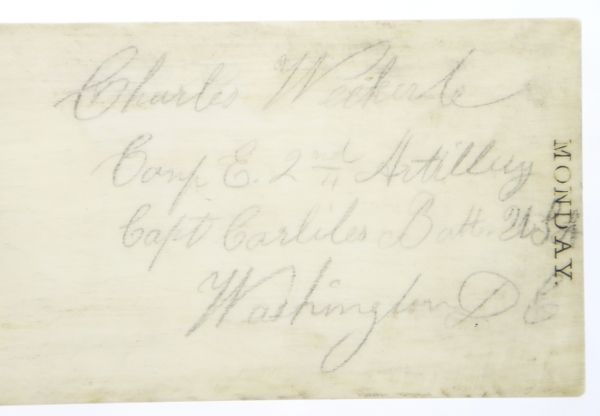 Charles Weckerle
Comp E. 2nd Artillery
Capt Carliles Batt. USA
Washington D C
MONDAY.